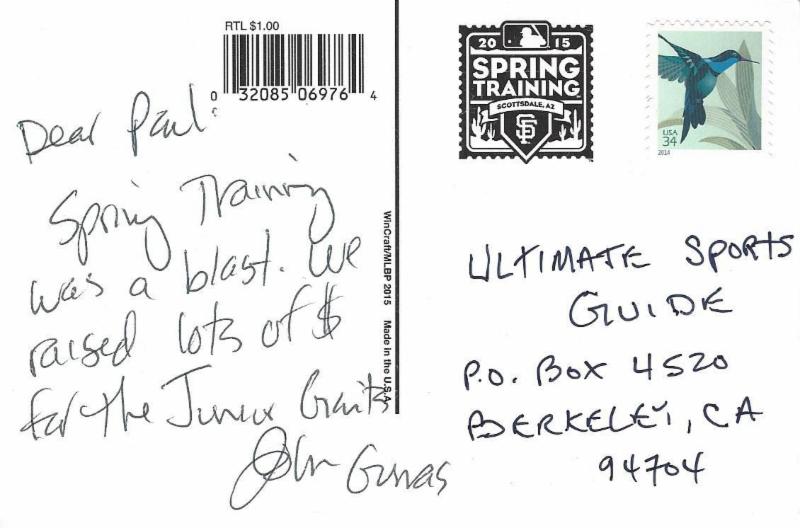 RTL $1.00
0 32085 06976 4
Dear Paul
Spring Training
was a blast. We
raised lots of $
for the Junior Giants
John
WinCraft/MLBP 2015 Made in the U.S.A.
2015
SPRING
TRAINING
SCOTTSDALE, AZ
SF
USA
34
2014
ULTIMATE SPORTS
GUIDE
P.O. BOX 4520
BERKELEY, CA
94704